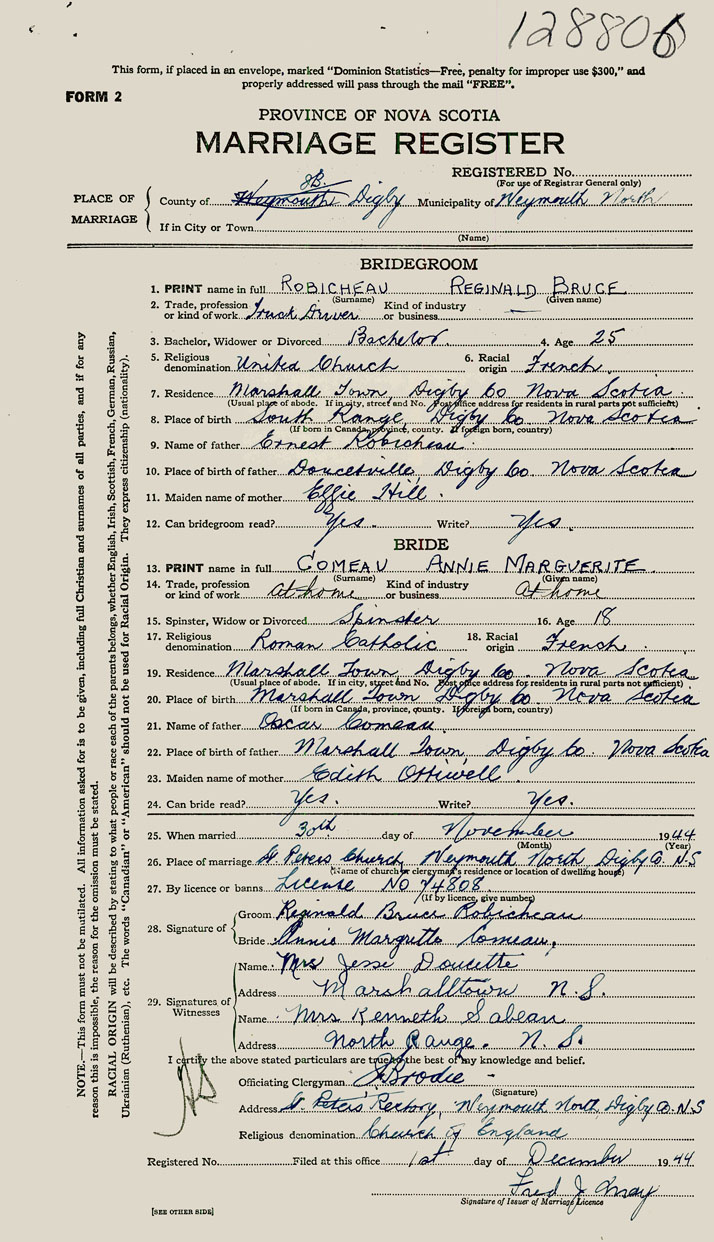 128806
This form, if placed in an envelope, marked “Dominion Statistics—Free, penalty for improper use $300,” and
properly addressed will pass through the mail “FREE”.
FORM 2
PROVINCE OF NOVA SCOTIA
MARRIAGE REGISTER
REGISTERED No.
(For use of Registrar General only)
PLACE OF MARRIAGE
County of Weymouth Digby Municipality of Weymouth North
If in City or Town
(Name)
BRIDEGROOM
1. PRINT name in full ROBICHEAU REGINALD BRUCE
(Surname) (Given name)
2. Trade, profession or kind of work Truck Driver Kind of industry or business —
3. Bachelor, Widower or Divorced Bachelor 4. Age 25
5. Religious denomination United Church 6. Racial origin French
7. Residence Marshall Town Digby Co Nova Scotia
(Usual place of abode. If in city, street and No. Post office address for residents in rural parts not sufficient)
8. Place of birth South Range, Digby Co Nova Scotia
(If born in Canada, province, county. If foreign born, country)
9. Name of father Ernest Robicheau
10. Place of birth of father Doucetville Digby Co. Nova Scotia
11. Maiden name of mother Effie Hill.
12. Can bridegroom read? Yes. Write? Yes.
BRIDE
13. PRINT name in full COMEAU ANNIE MARGUERITE.
(Surname) (Given name)
14. Trade, profession or kind of work at home Kind of industry or business At home
15. Spinster, Widow or Divorced Spinster 16. Age 18
17. Religious denomination Roman Catholic 18. Racial origin French.
19. Residence Marshall Town Digby Co. Nova Scotia
(Usual place of abode. If in city, street and No. Post office address for residents in rural parts not sufficient)
20. Place of birth Marshall Town Digby Co Nova Scotia
(If born in Canada, province, county. If foreign born, country)
21. Name of father Oscar Comeau.
22. Place of birth of father Marshall Town, Digby Co. Nova Scotia
23. Maiden name of mother Edith Ottiwell.
24. Can bride read? Yes. Write? Yes.
25. When married 30th day of November 1944
(Month) (Year)
26. Place of marriage St Peters Church Weymouth North Digby Co. N.S
(Name of church or clergyman's residence or location of dwelling house)
27. By licence or banns License No 74808.
(If by licence, give number)
28. Signature of
Groom Reginald Bruce Robicheau
Bride Annie Margretta Comeau.
29. Signatures of Witnesses
Name Mrs Jesse Doucette
Address Marshalltown N.S.
Name Mrs Kenneth Sabean
Address North Range. N.S.
I certify the above stated particulars are true to the best of my knowledge and belief.
Officiating Clergyman Brodie
(Signature)
Address St. Peters Rectory, Weymouth North, Digby Co. N.S
Religious denomination Church of England
Registered No. Filed at this office 1st day of December 1944
Fred J
Signature of Issuer of Marriage Licence
[SEE OTHER SIDE]
NOTE.—This form must not be mutilated. All information asked for is to be given, including full Christian and surnames of all parties, and if for any
reason this is impossible, the reason for the omission must be stated.
RACIAL ORIGIN will be described by stating to what people or race each of the parents belongs, whether English, Irish, Scottish, French, German, Russian,
Ukrainian (Ruthenian), etc. The words “Canadian” or “American” should not be used for Racial Origin. They express citizenship (nationality).